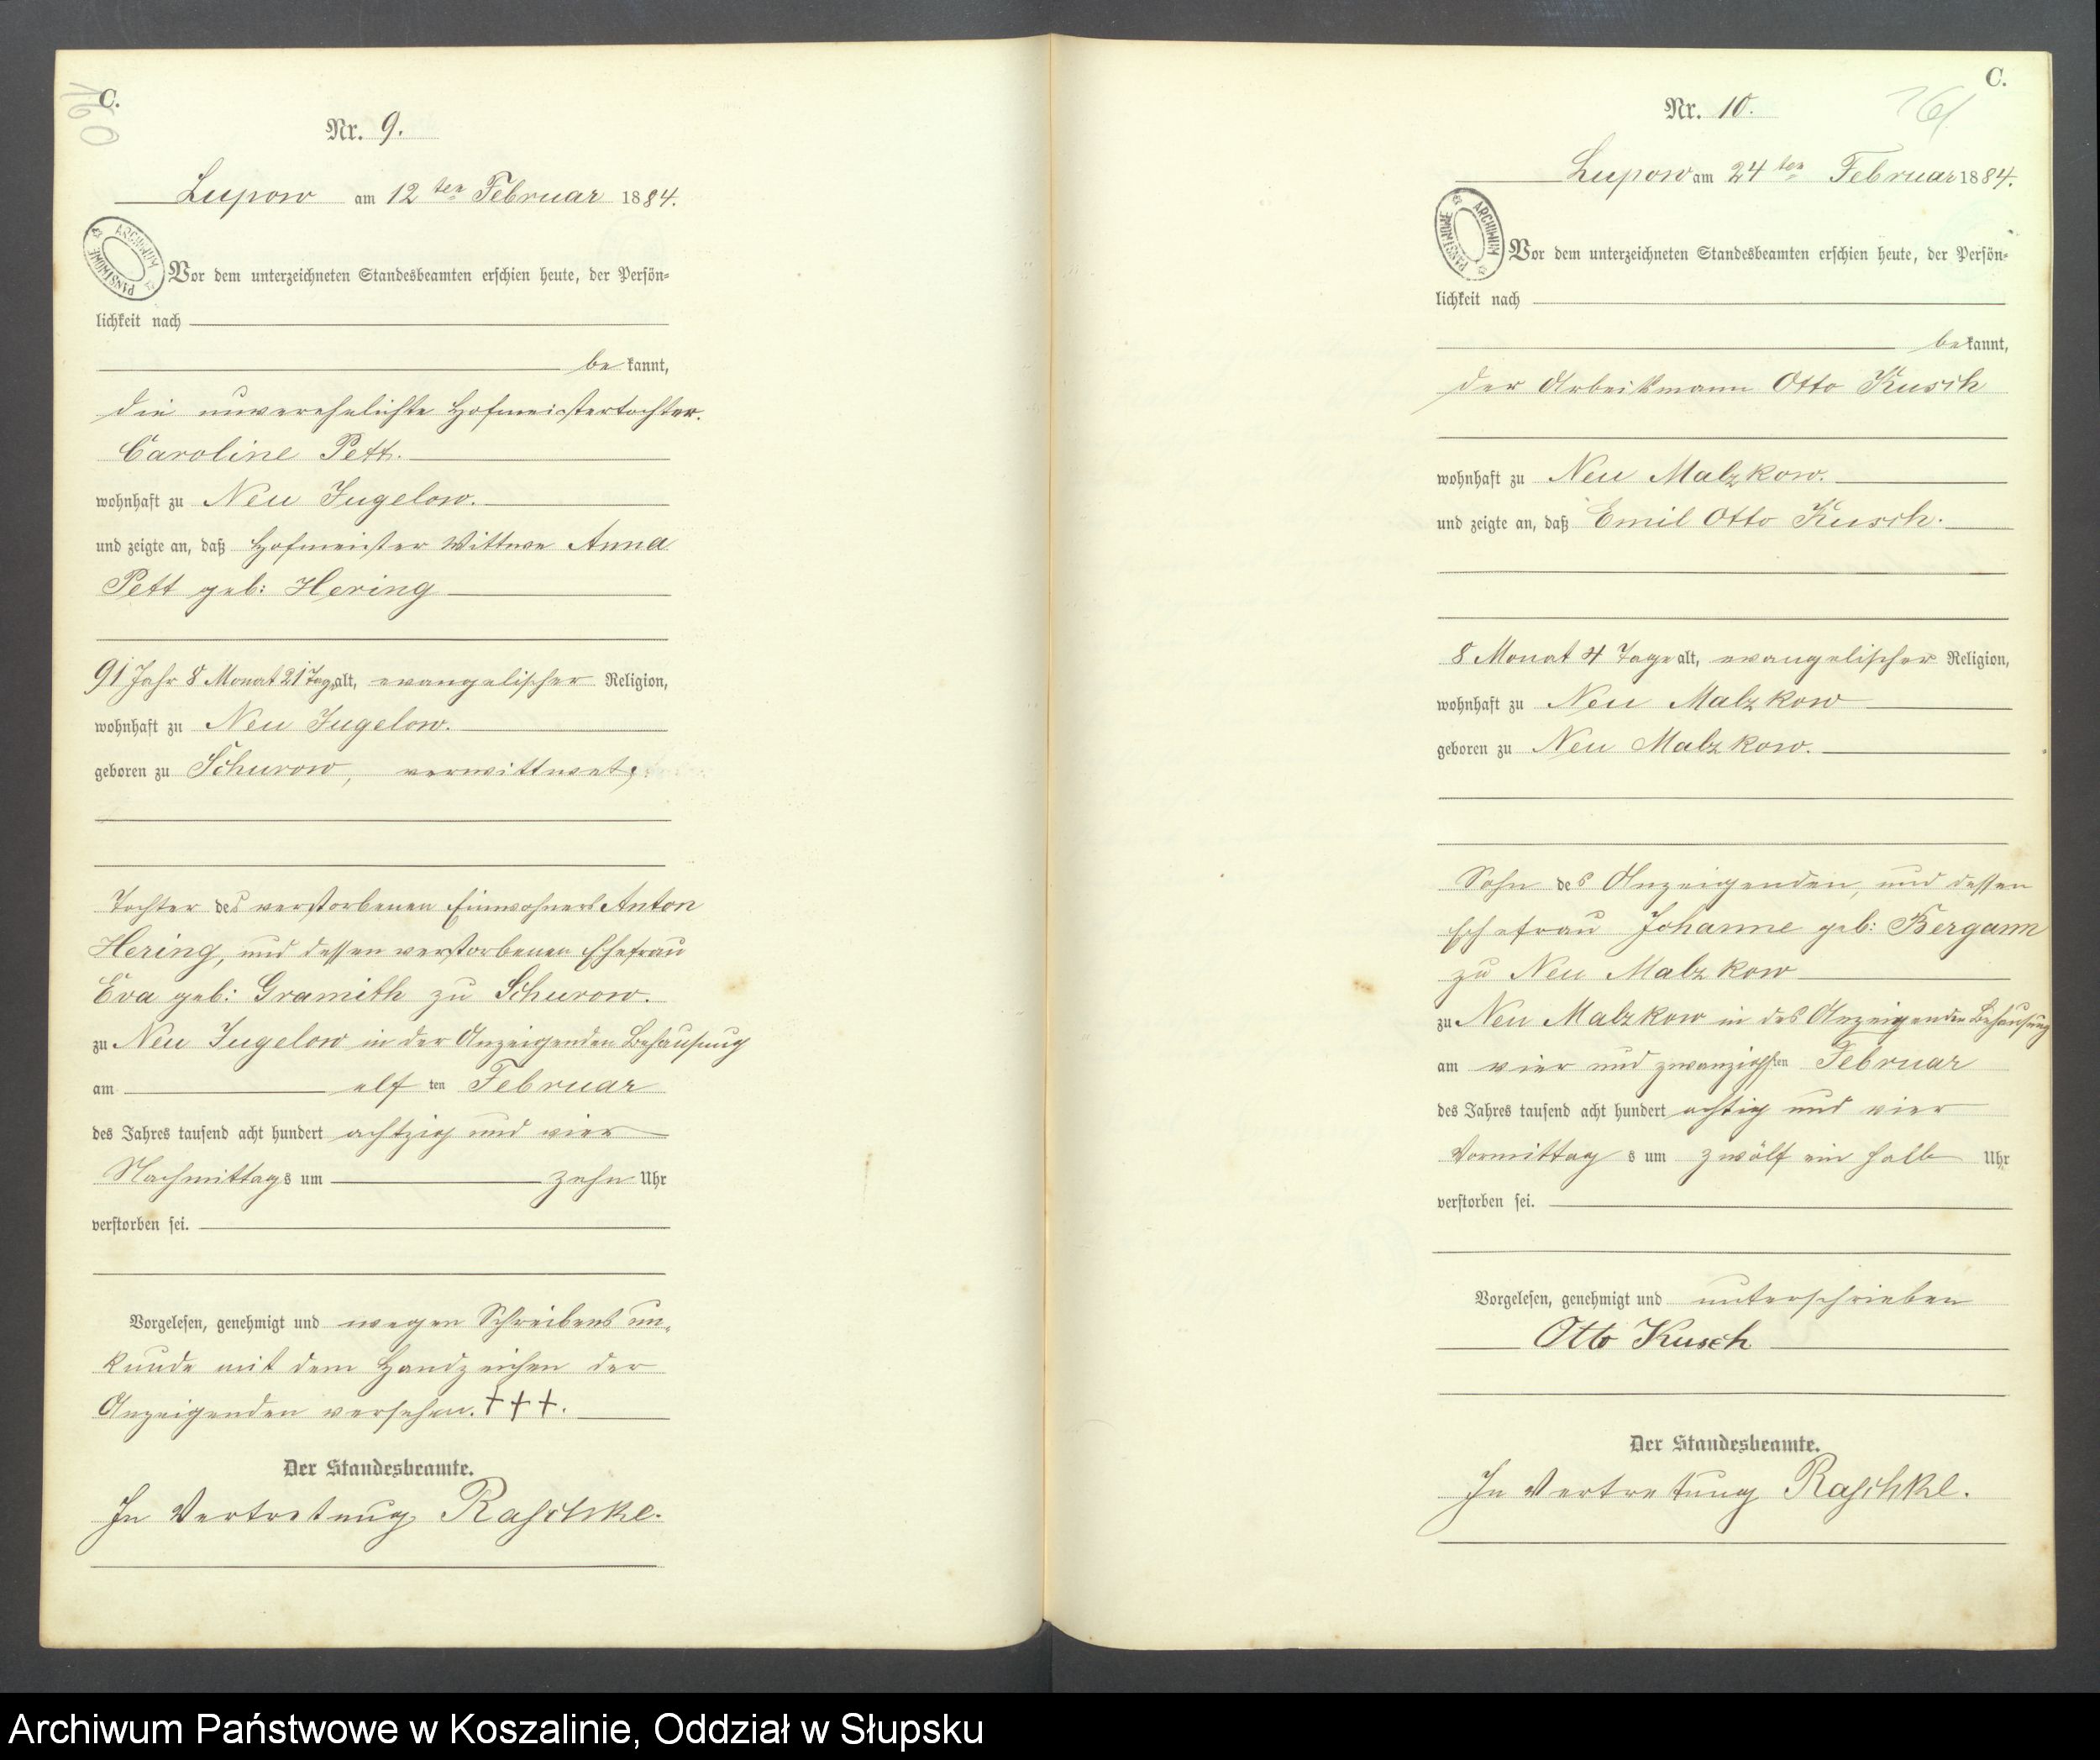 C.
160
Nr. 9.
Lupow am 12 ten Februar 1884.
ARCHIWUM PAŃSTWOWE
Vor dem unterzeichneten Standesbeamten erschien heute, der Persön=
lichkeit nach
be kannt,
die unverehelichte Hofmeistertochter.
Caroline Pett.
wohnhaft zu Neu Jugelow.
und zeigte an, daß Hofmeister Wittwe Anna
Pett geb: Hering
91 Jahr 8 Monat 21 Tag alt, evangelischer Religion,
wohnhaft zu Neu Jugelow.
geboren zu Schurow, verwittwet,
Tochter des verstorbenen Einwohners Anton
Hering, und dessen verstorbenen Ehefrau
Eva geb: Gramith zu Schurow.
zu Neu Jugelow in der Anzeigenden Behausung
am elf ten Februar
des Jahres tausend acht hundert achtzig und vier
Nachmittags um zehn Uhr
verstorben sei.
Vorgelesen, genehmigt und wegen Schreibens un=
kunde mit dem Handzeichen der
Anzeigenden versehen. +++.
Der Standesbeamte.
In Vertretung Raschke.
C.
161
Nr. 10.
Lupow am 24 ten Februar 1884.
ARCHIWUM PAŃSTWOWE
Vor dem unterzeichneten Standesbeamten erschien heute, der Persön=
lichkeit nach
bekannt,
der Arbeitsmann Otto Kusch
wohnhaft zu Neu Malzkow.
und zeigte an, daß Emil Otto Kusch.
8 Monat 4 Tage alt, evangelischer Religion,
wohnhaft zu Neu Malzkow
geboren zu Neu Malzkow.
Sohn des Anzeigenden, und dessen
Ehefrau Johanne geb: Bergann
zu Neu Malzkow
zu Neu Malzkow in des Anzeigenden Behausung
am vier und zwanzigsten Februar
des Jahres tausend acht hundert achtzig und vier
Vormittag s um zwölf ein halb Uhr
verstorben sei.
Vorgelesen, genehmigt und unterschrieben
Otto Kusch
Der Standesbeamte.
In Vertretung Raschke.
Archiwum Państwowe w Koszalinie, Oddział w Słupsku